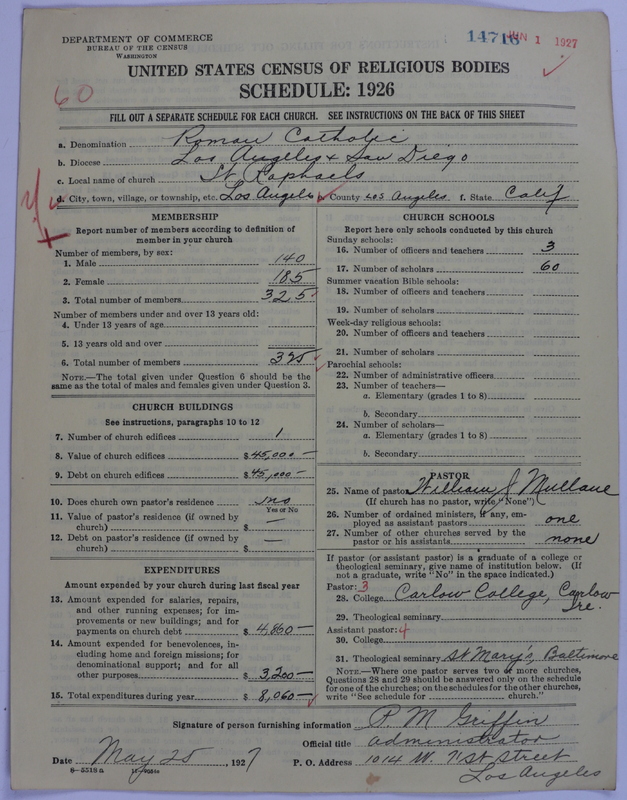 DEPARTMENT OF COMMERCE
BUREAU OF THE CENSUS
WASHINGTON
14716 JUN 1 1927
UNITED STATES CENSUS OF RELIGIOUS BODIES
SCHEDULE: 1926
60
FILL OUT A SEPARATE SCHEDULE FOR EACH CHURCH. SEE INSTRUCTIONS ON THE BACK OF THIS SHEET
a. Denomination Roman Catholic
b. Diocese Los Angeles & San Diego
c. Local name of church St Raphaels
d. City, town, village, or township, etc. Los Angeles County Los Angeles f. State Calif
MEMBERSHIP
Report number of members according to definition of
member in your church
Number of members, by sex:
1. Male 140
2. Female 185
3. Total number of members 325
Number of members under and over 13 years old:
4. Under 13 years of age
5. 13 years old and over
6. Total number of members 325
NOTE.—The total given under Question 6 should be the
same as the total of males and females given under Question 3.
CHURCH BUILDINGS
See instructions, paragraphs 10 to 12
7. Number of church edifices 1
8. Value of church edifices $ 45,000 —
9. Debt on church edifices $ 45,000 —
10. Does church own pastor's residence no
Yes or No
11. Value of pastor's residence (if owned by
church) $ —
12. Debt on pastor's residence (if owned by
church) $ —
EXPENDITURES
Amount expended by your church during last fiscal year
13. Amount expended for salaries, repairs,
and other running expenses; for im-
provements or new buildings; and for
payments on church debt $ 4,860 —
14. Amount expended for benevolences, in-
cluding home and foreign missions; for
denominational support; and for all
other purposes $ 3,200 —
15. Total expenditures during year $ 8,060 —
CHURCH SCHOOLS
Report here only schools conducted by this church
Sunday schools:
16. Number of officers and teachers 3
17. Number of scholars 60
Summer vacation Bible schools:
18. Number of officers and teachers
19. Number of scholars
Week-day religious schools:
20. Number of officers and teachers
21. Number of scholars
Parochial schools:
22. Number of administrative officers
23. Number of teachers—
a. Elementary (grades 1 to 8)
b. Secondary
24. Number of scholars—
a. Elementary (grades 1 to 8)
b. Secondary
PASTOR
25. Name of pastor William J Mullane
(If church has no pastor, write "None")
26. Number of ordained ministers, if any, em-
ployed as assistant pastors one
27. Number of other churches served by the
pastor or his assistants none
If pastor (or assistant pastor) is a graduate of a college or
theological seminary, give name of institution below. (If
not a graduate, write "No" in the space indicated.)
Pastor: 3
28. College Carlow College, Carlow
Ire.
29. Theological seminary
Assistant pastor: 4
30. College
31. Theological seminary St Mary's, Baltimore
NOTE.—Where one pastor serves two or more churches,
Questions 28 and 29 should be answered only on the schedule
for one of the churches; on the schedules for the other churches,
write "See schedule for church."
Signature of person furnishing information P. M. Griffin
Official title administrator
Date May 25, 1927 P. O. Address 1014 W. 71st Street
Los Angeles
8—5518 a